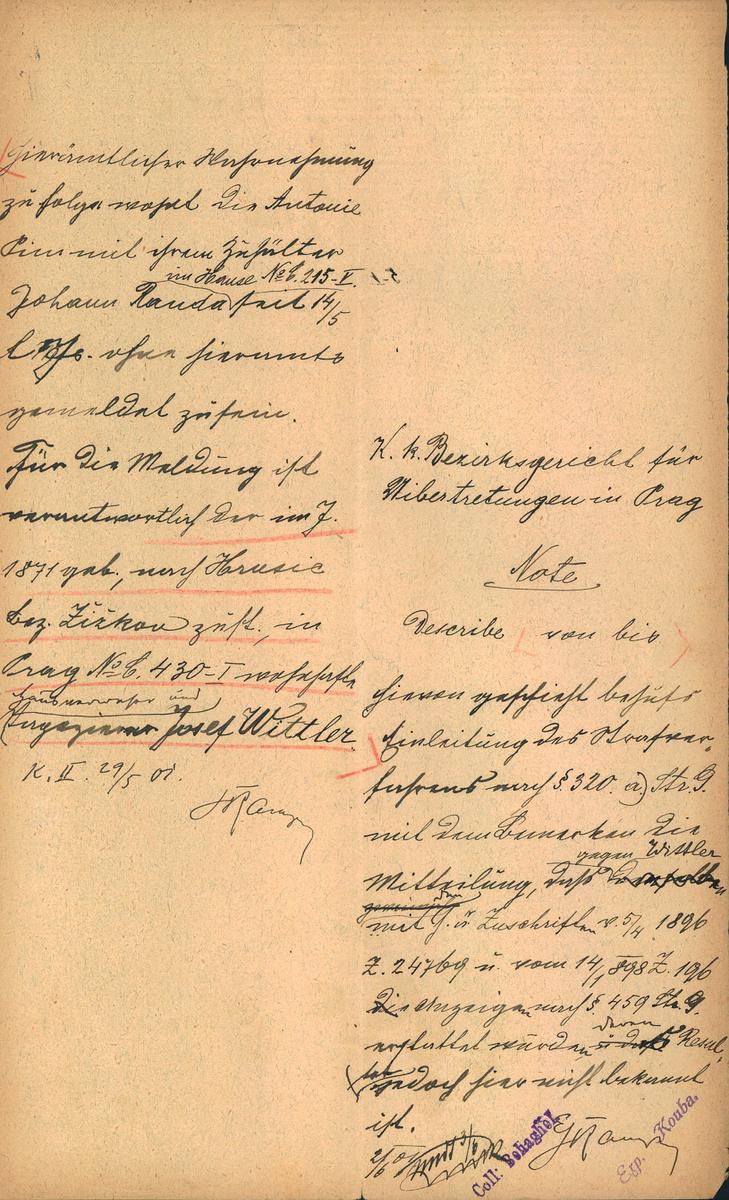 Hierämtlicher Wahrnehmung
zu folge wohnt die Antonie
mit ihrem Zuhälter
im Hause No C. 215-I.
Johann Randa seit 14/5
l. Js. ohne hieramts
gemeldet zu sein.
Für die Meldung ist
verantwortlich der im J.
1871 geb., nach Hrusic
Bez. Žižkov zust., in
Prag No C. 430-I wohnhafte
Hausverweser und
Tapezierer Josef Wittler.
K. II. 29/5 01.
K. k. Bezirksgericht für
Uibertretungen in Prag
Note
Describe von bis
hievon geschieht behufs
Einleitung des Strafver-
fahrens nach §. 320. a) Str. G.
mit dem Bemerken die
gegen Wittler
Mitteilung, daß
mit h. ä. Zuschriften v. 5/4 1896
Z. 24769 u. vom 14/1 898 Z. 196
die Anzeigen nach §. 459 Str. G.
erstattet wurden, deren Resul-
tat jedoch hier nicht bekannt
ist.
Coll: Behaghel
Exp. Kouba.